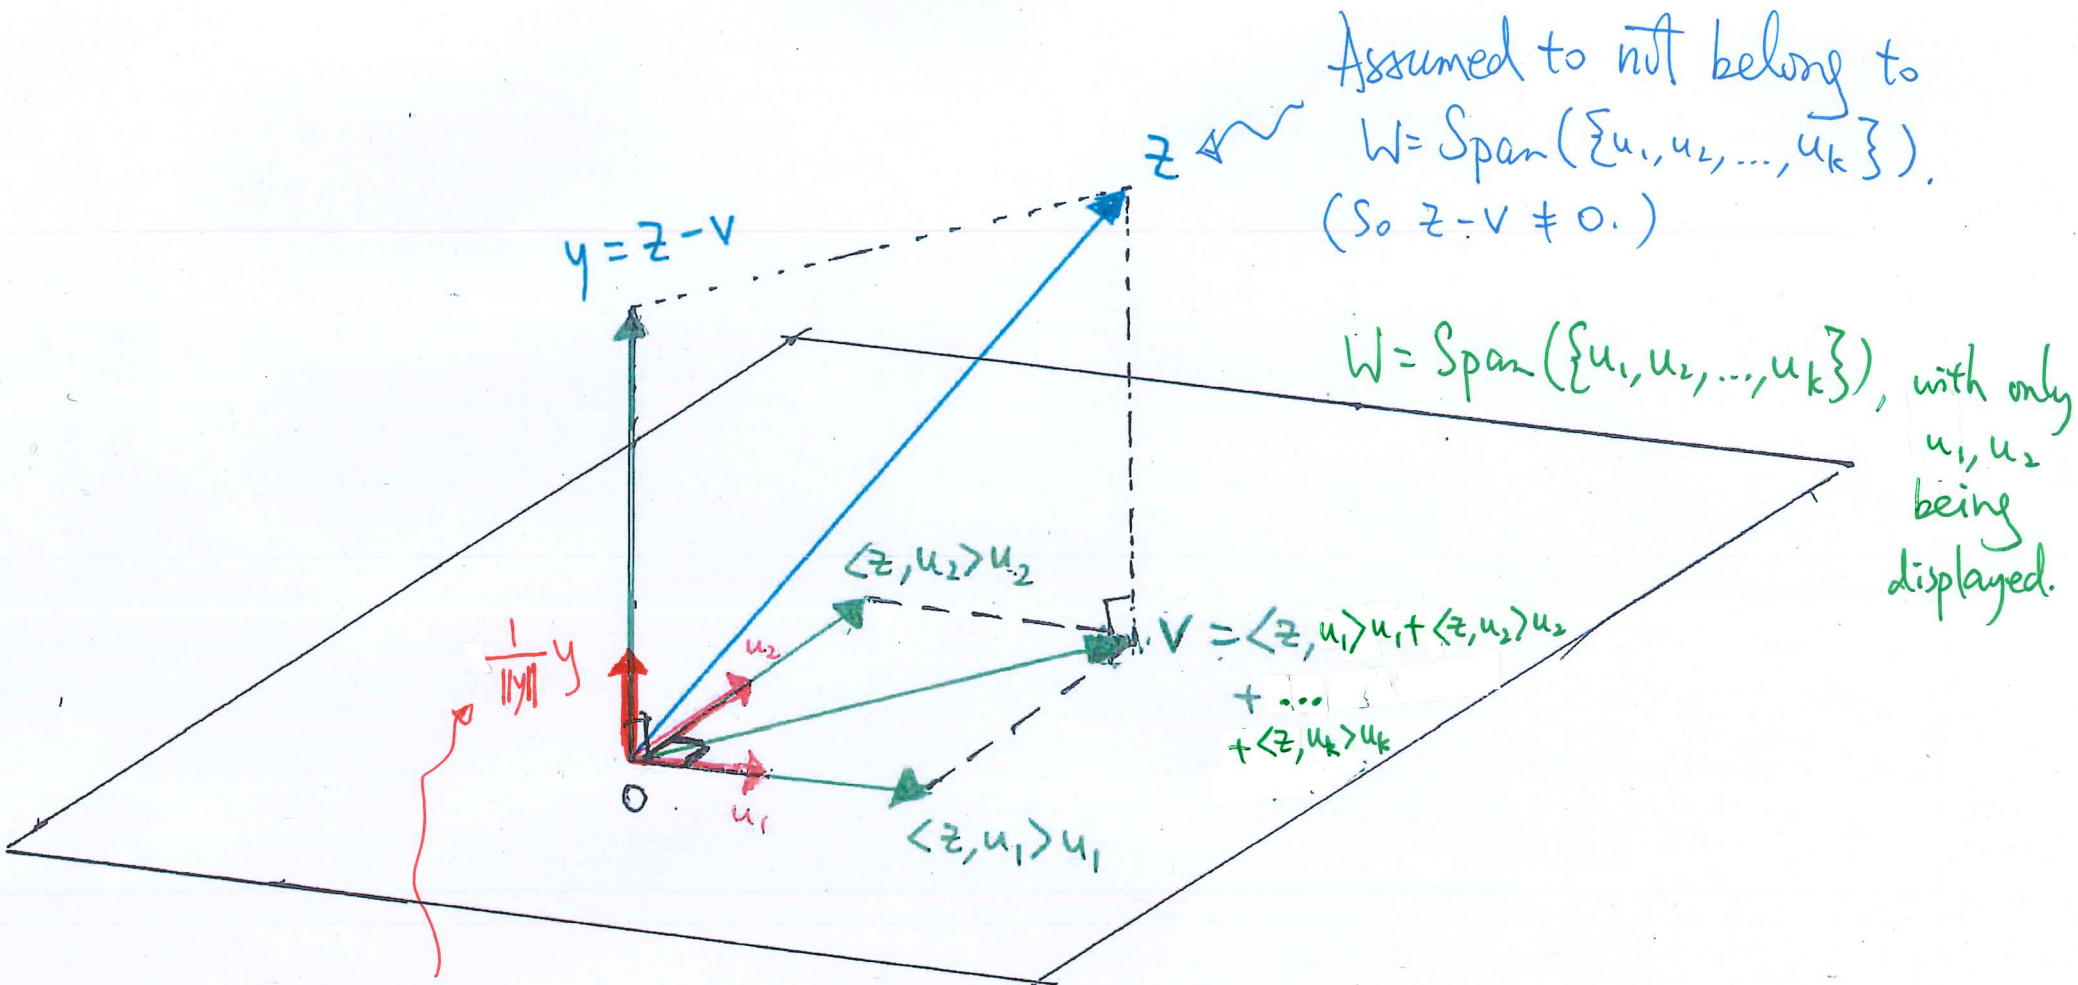 Assumed to not belong to
W = Span({u₁, u₂, ..., uₖ}).
(So z - v ≠ 0.)
z
y = z - v
W = Span({u₁, u₂, ..., uₖ}), with only
u₁, u₂
being
displayed.
<z, u₂>u₂
v = <z, u₁>u₁ + <z, u₂>u₂
+ ...
+ <z, uₖ>uₖ
1/‖y‖ y
u₂
u₁
0
<z, u₁>u₁